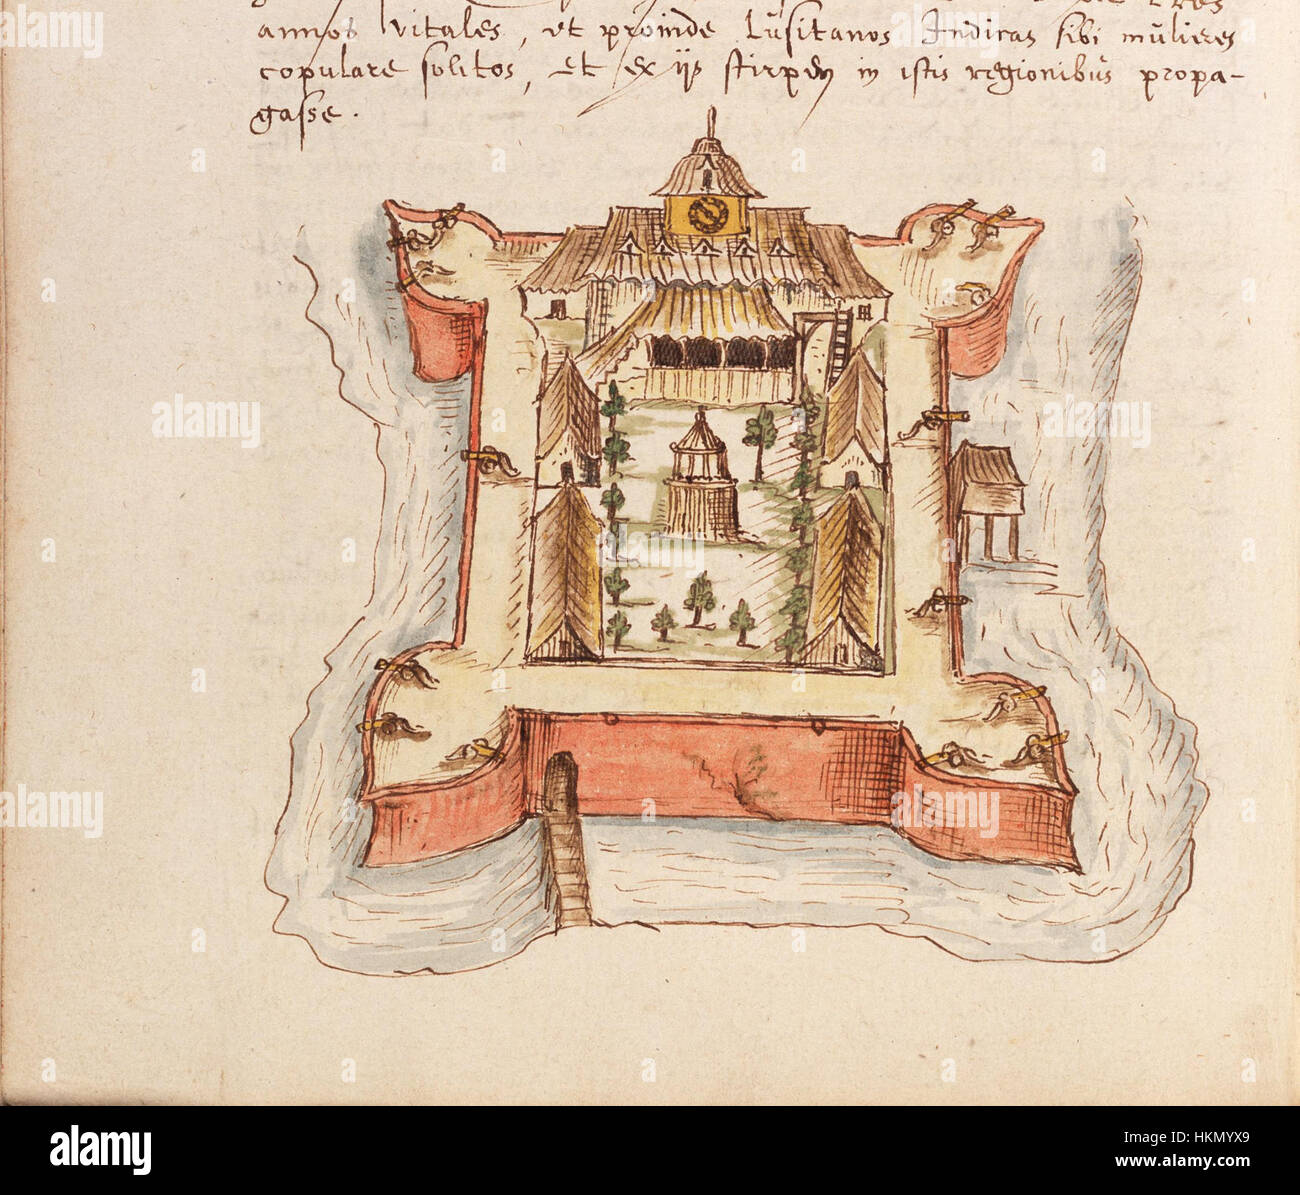 annos vitales, et proinde Lusitanos Indicas sibi mulieres
copulare solitos, et ex ijs stirpem in istis regionibus propa-
gasse.
alamy
Image ID: HKMYX9
www.alamy.com